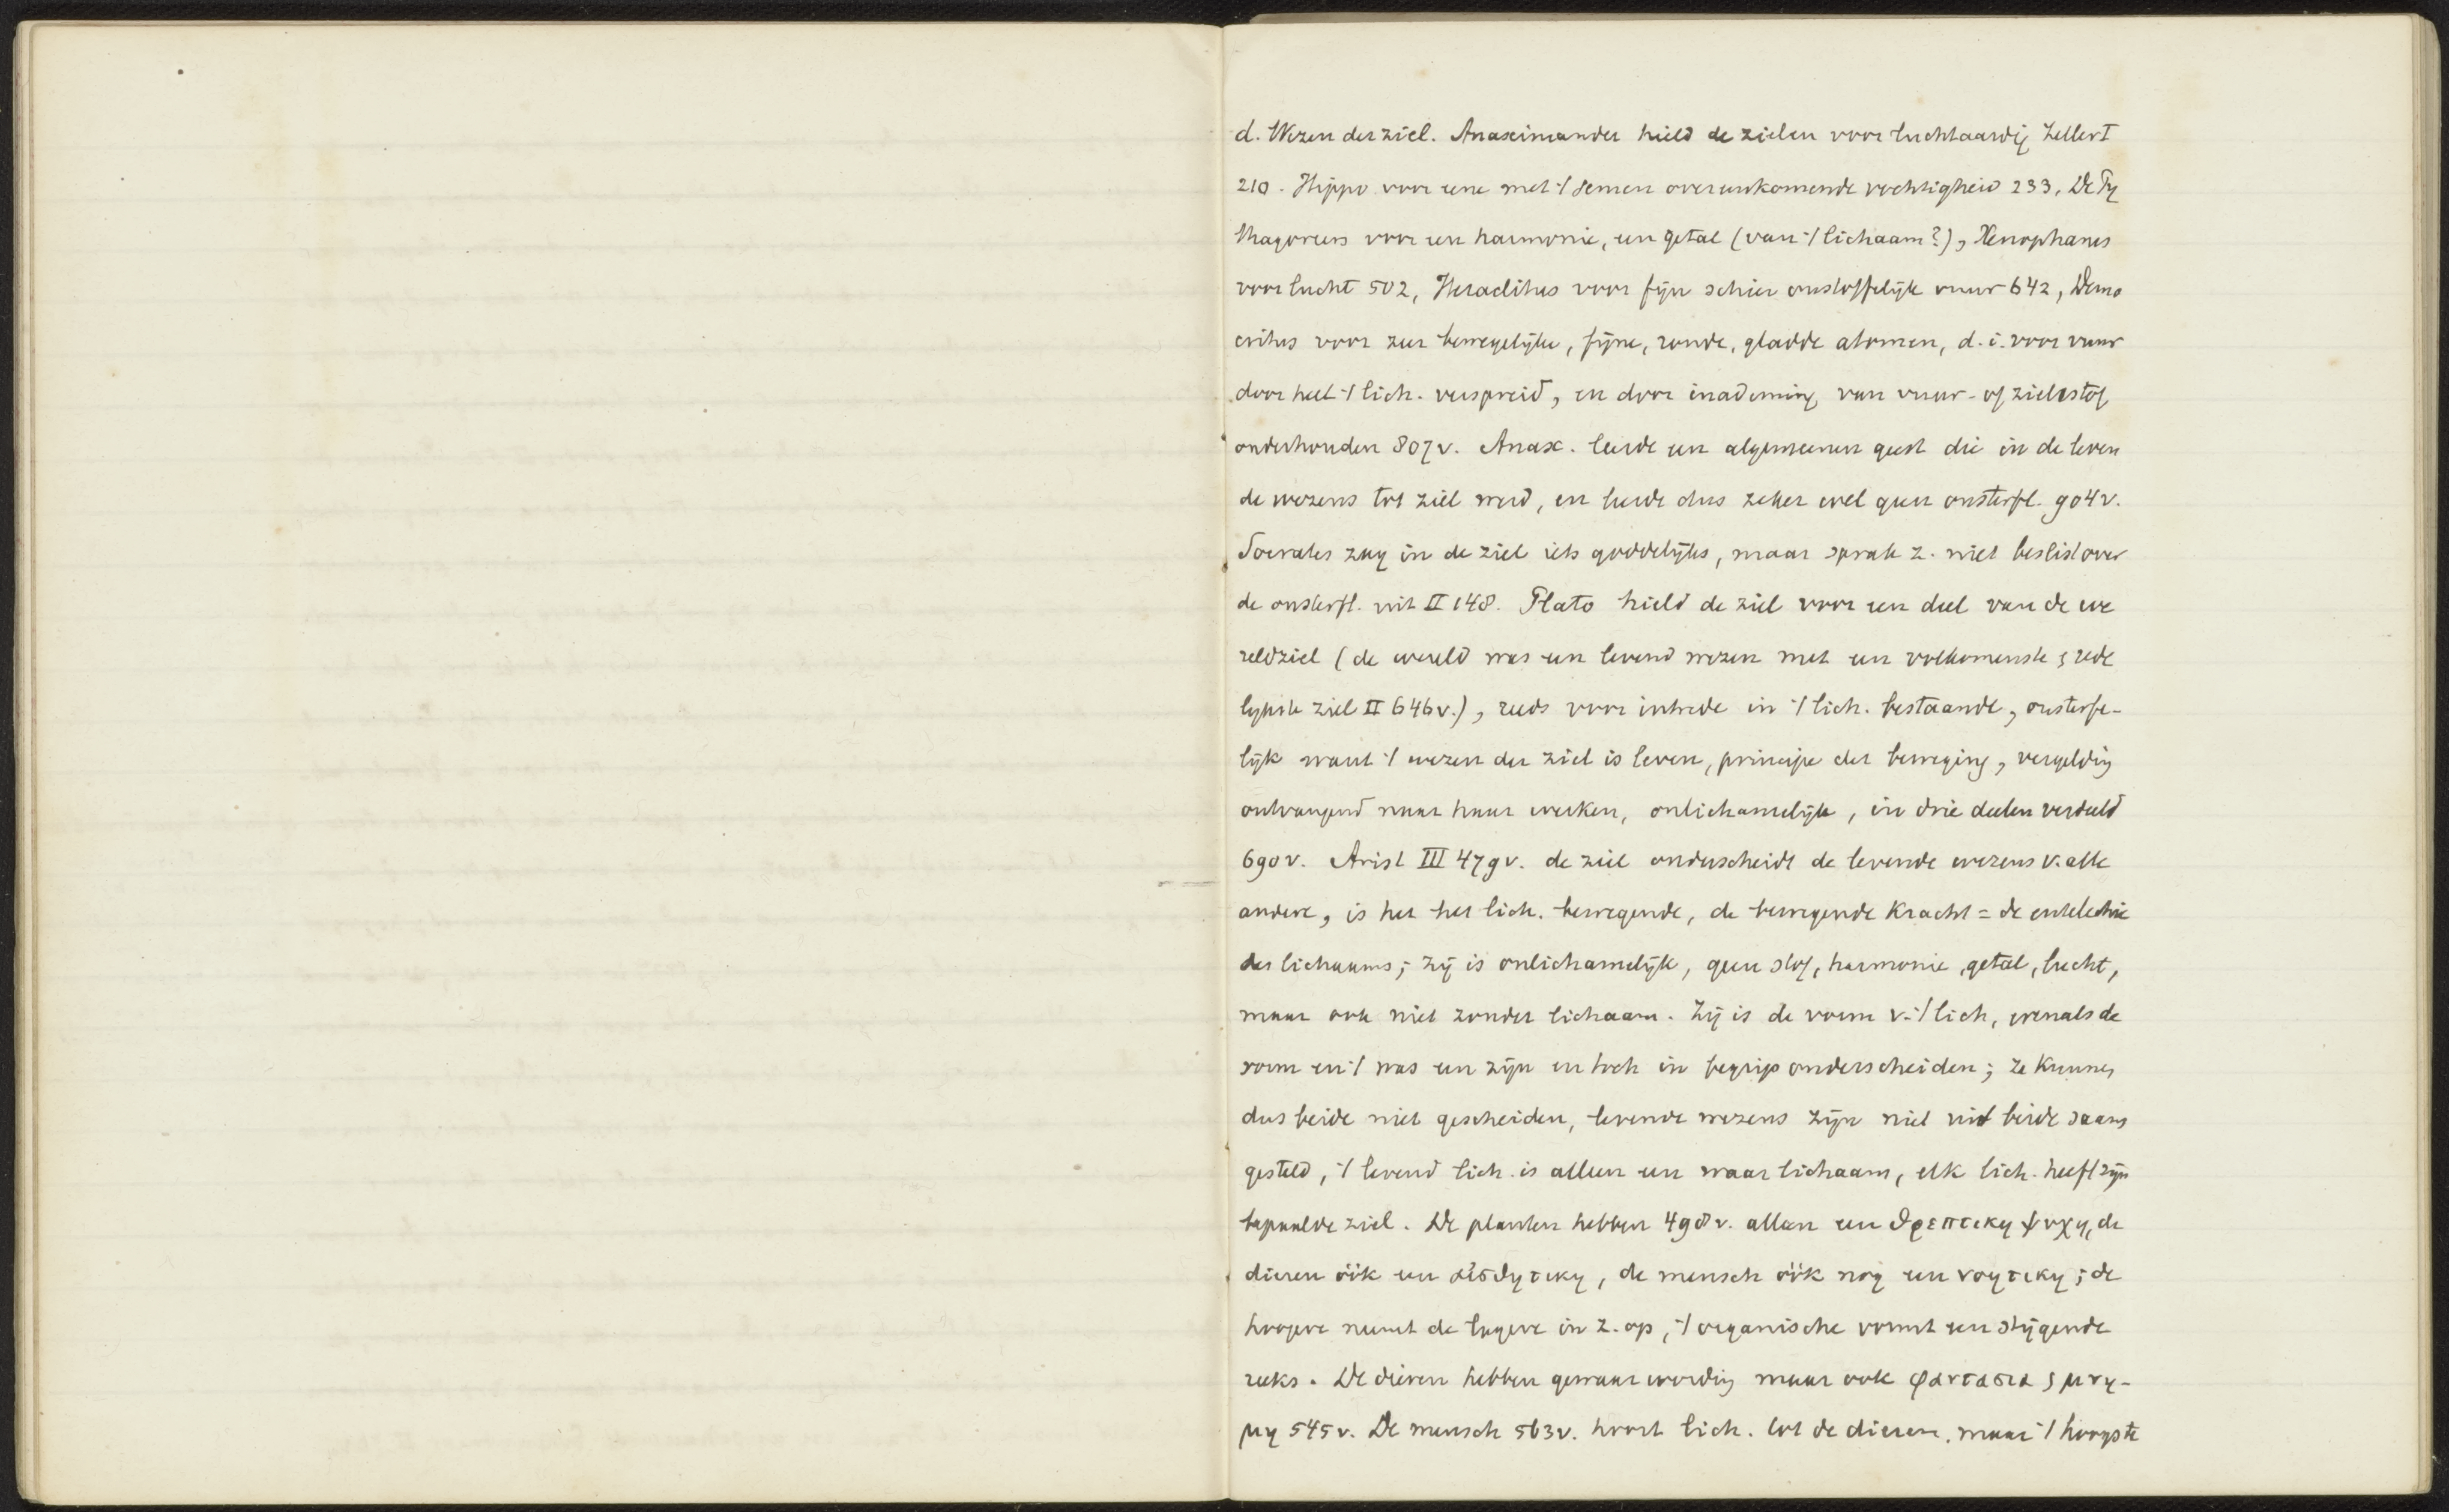 d. Wezen der ziel. Anaximander hield de zielen voor luchtaardig Zeller I
210. Hippo voor eene met 't semen overeenkomende vochtigheid 233, De Py
thagoreers voor een harmonie, een getal (van 't lichaam?), Xenophanes
voor lucht 502, Heraclitus voor fijn schier onstoffelijk vuur 642, Demo
critus voor zeer bewegelijke, fijne, ronde, gladde atomen, d. i. voor vuur
door heel 't lich. verspreid, en door inademing van vuur- of zielestof
onderhouden 807 v. Anax. leerde een algemeenen geest die in de leven
de wezens tot ziel werd, en leerde dus zeker wel geen onsterfl. 904 v.
Socrates zag in de ziel iets goddelijks, maar sprak z. niet beslist over
de onsterfl. uit II 148. Plato hield de ziel voor een deel van de we
reldziel (de wereld was een levend wezen met een volkomenste, rede
lijkste ziel II 646 v.), reeds voor intrede in 't lich. bestaande, onsterfe-
lijk want 't wezen der ziel is leven, principe der beweging, vergelding
ontvangend naar haar werken, onlichamelijk, in drie deelen verdeeld
690 v. Arist III 479 v. de ziel onderscheidt de levende wezens v. alle
andere, is het het lich. bewegende, de bewegende kracht = de entelechie
des lichaams; zij is onlichamelijk, geen stof, harmonie, getal, lucht,
maar ook niet zonder lichaam. Zij is de vorm v. 't lich, evenals de
vorm en 't was een zijn en toch in begrip onderscheiden; ze kunnen
dus beide niet gescheiden, levende wezens zijn niet uit beide saam
gesteld, 't levend lich. is alleen een waar lichaam, elk lich. heeft zijn
bepaalde ziel. De planten hebben 498 v. alleen een θρεπτικη ψυχη, de
dieren óók een αἰσθητικη, de mensch óók nog een νοητικη; de
hoogere neemt de lagere in z. op, 't organische vormt een stijgende
reeks. De dieren hebben gewaarwording maar ook φαντασια, μνη-
μη 545 v. De mensch 563 v. hoort lich. tot de dieren, maar 't hoogste